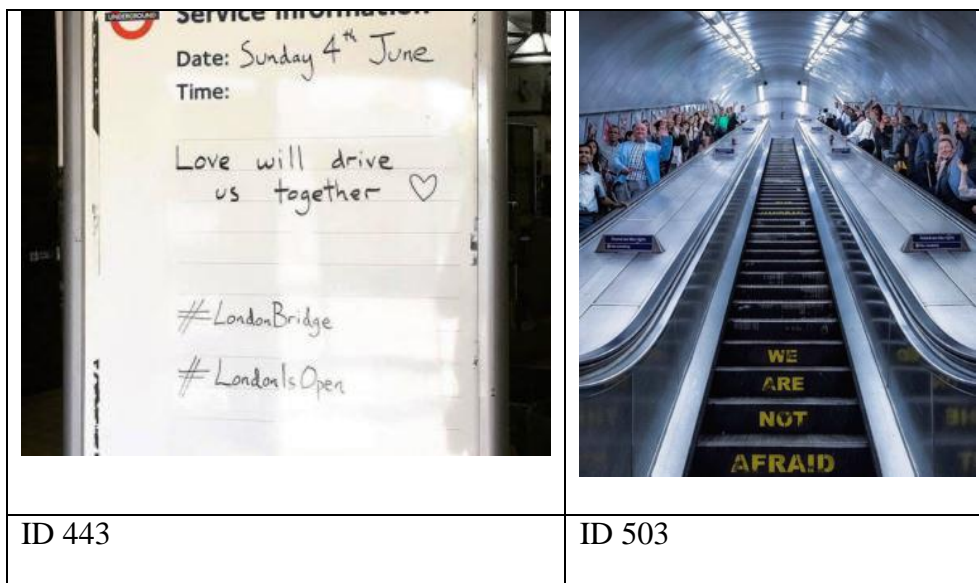 UNDERGROUND
Service Information
Date: Sunday 4th June
Time:
Love will drive
us together ♡
#LondonBridge
#LondonIsOpen
WE
ARE
NOT
AFRAID
ID 443
ID 503